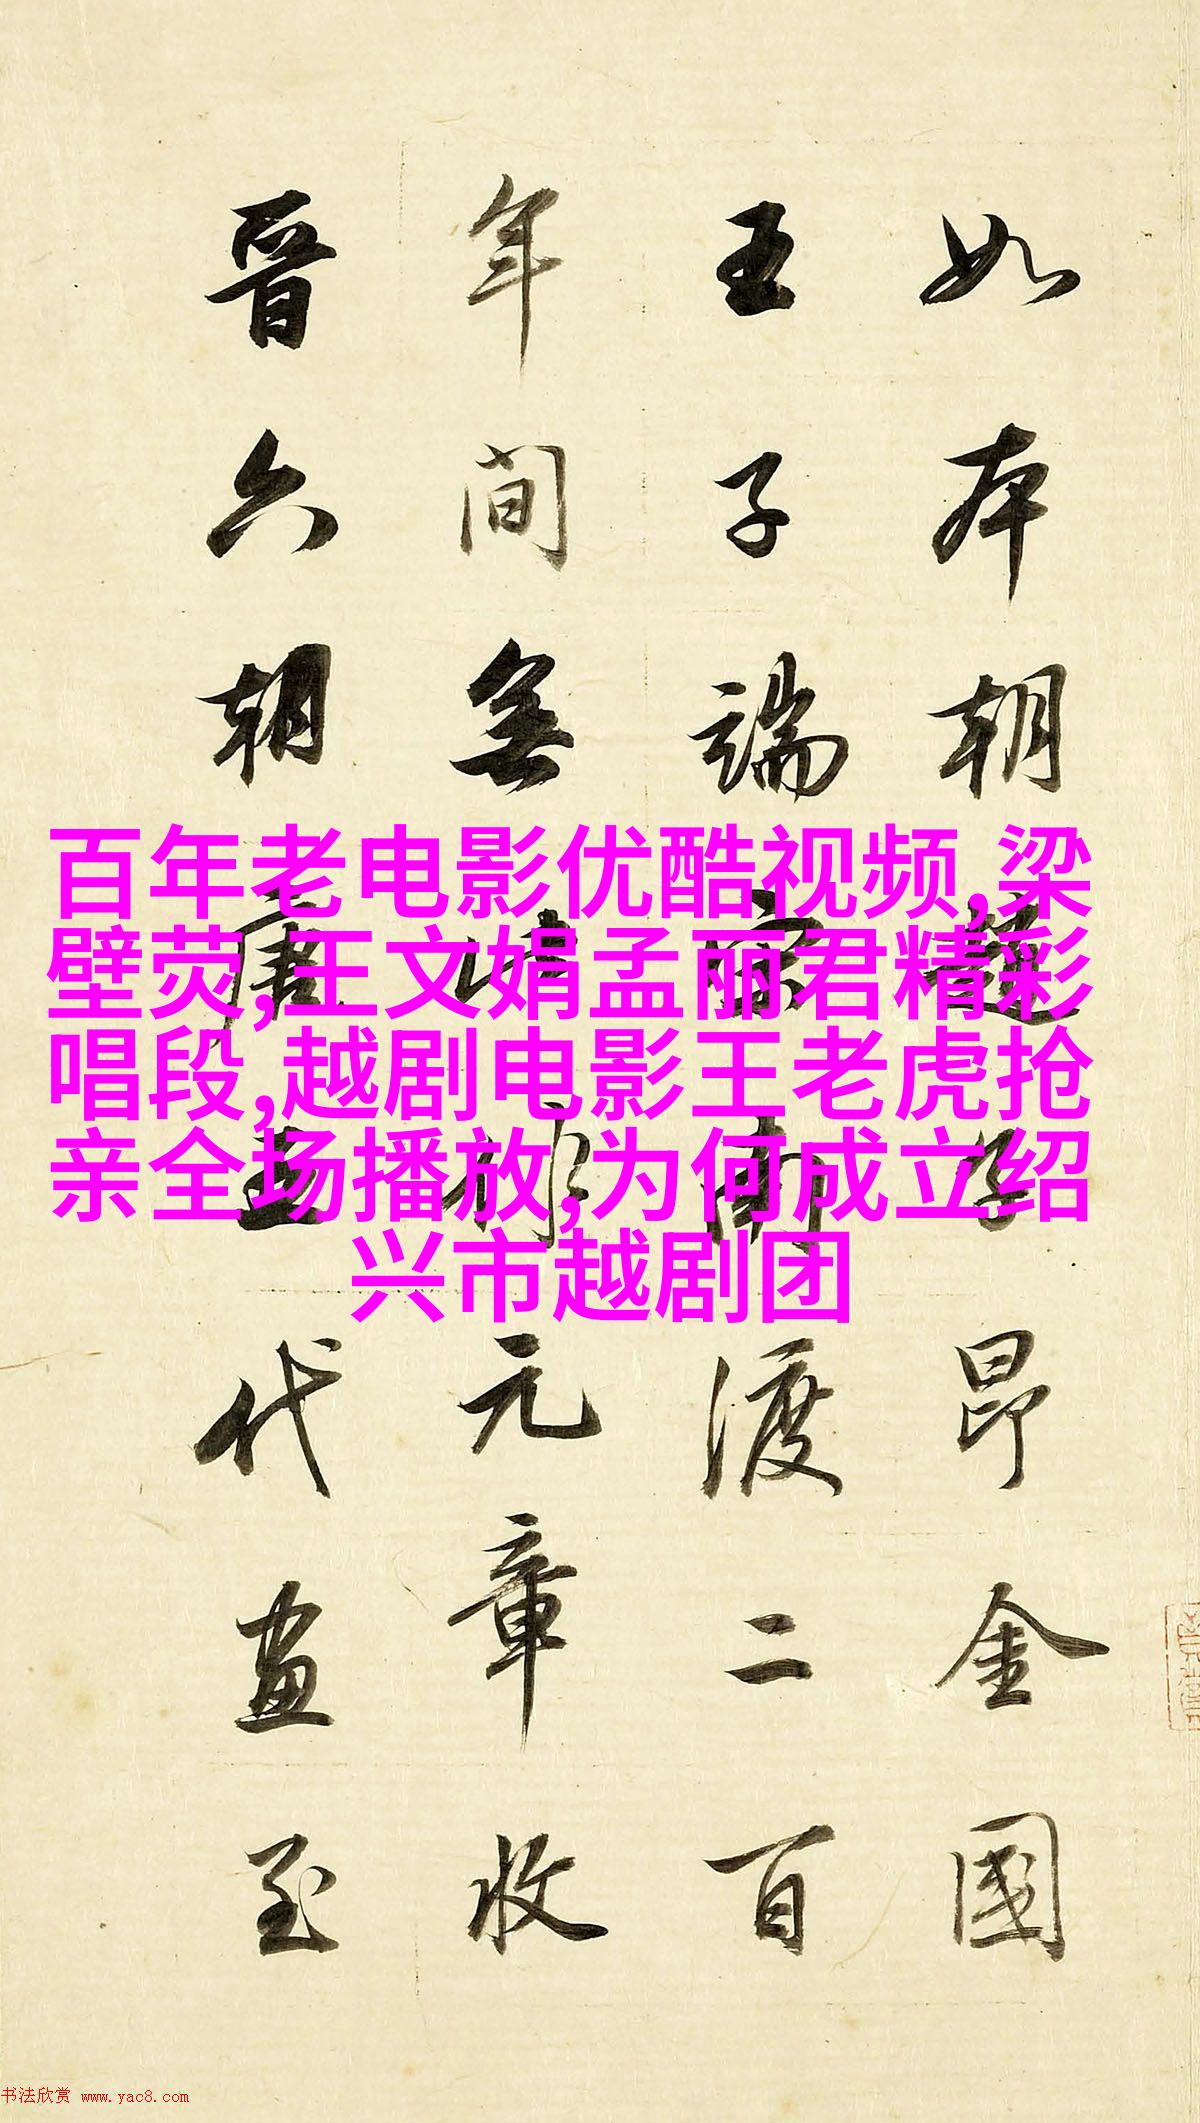 如本朝趙子昂金國
王子端宋南渡二百
年間無此作元章收
晉六朝唐五代畫至
百年老电影优酷视频,梁
壁荧,王文娟孟丽君精彩
唱段,越剧电影王老虎抢
亲全场播放,为何成立绍
兴市越剧团
书法欣赏 www.yac8.com